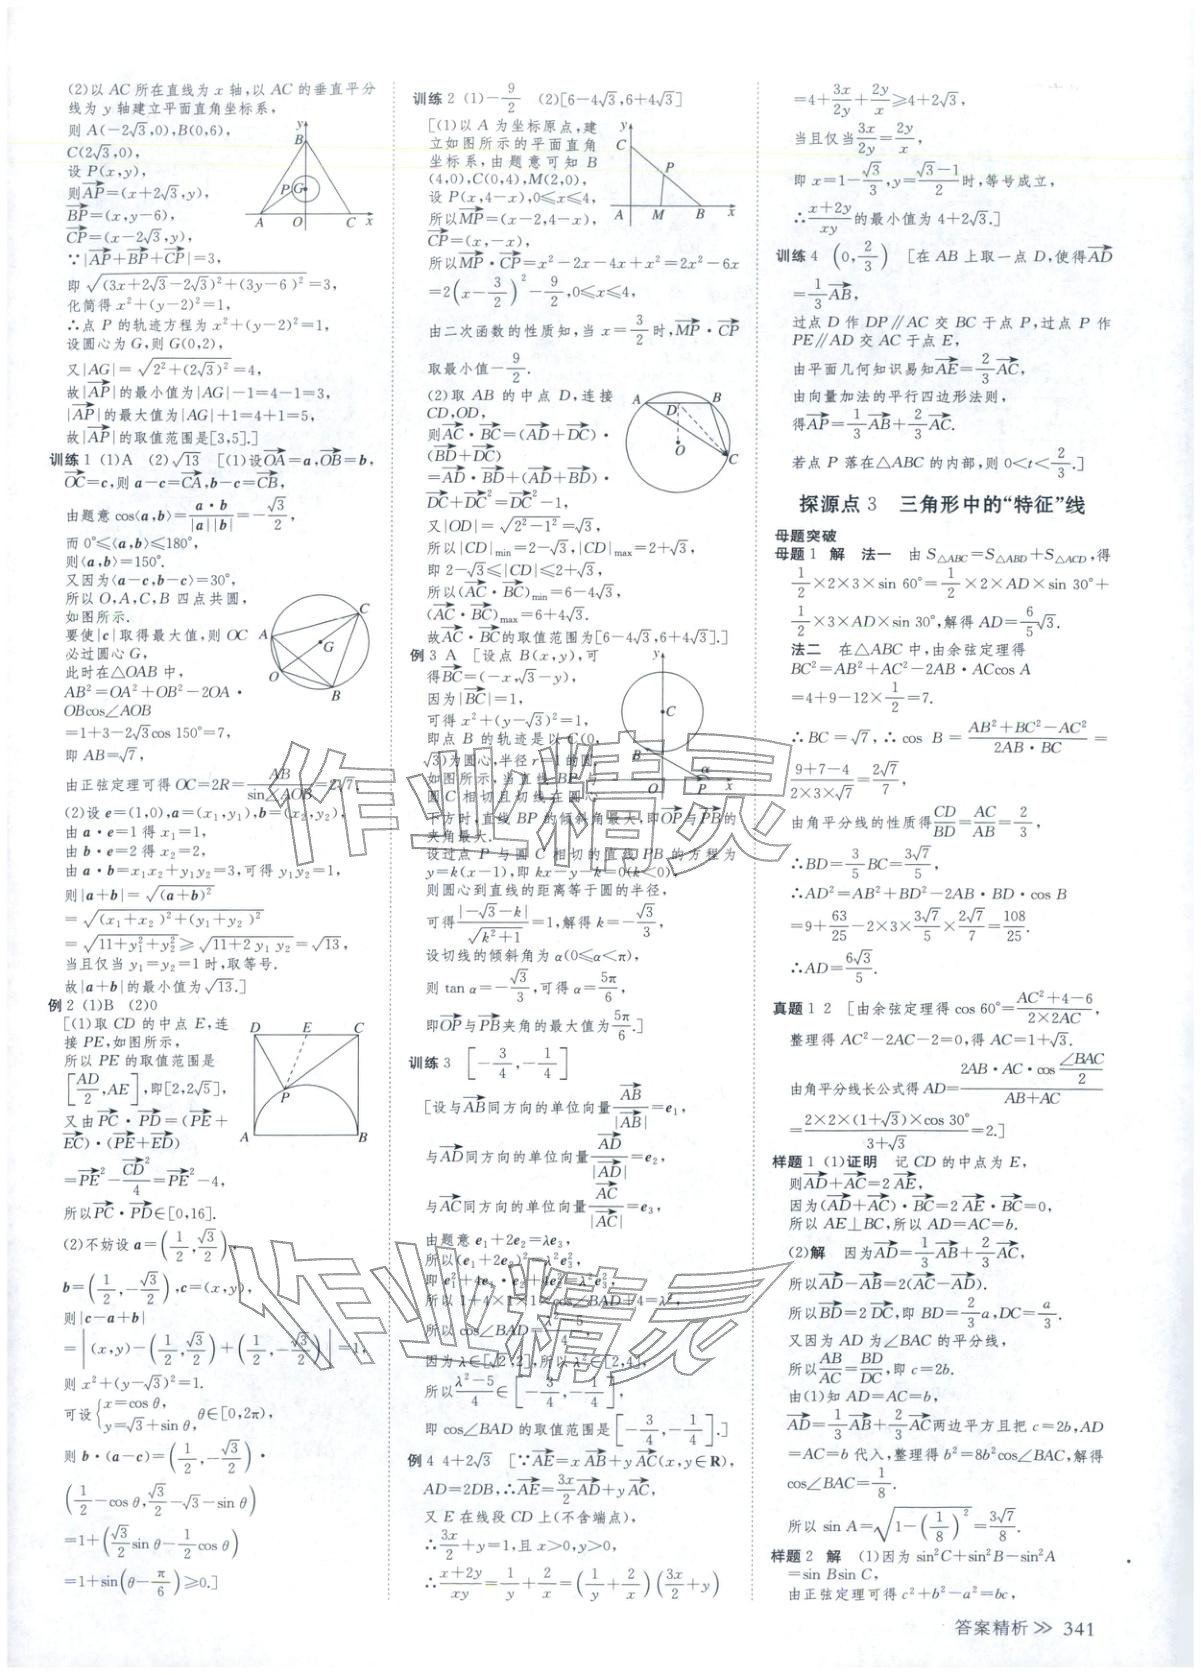 (2)以 AC 所在直线为 x 轴,以 AC 的垂直平分
线为 y 轴建立平面直角坐标系,
则 A(-2√3,0),B(0,6),
C(2√3,0),
设 P(x,y),
则AP→=(x+2√3,y),
BP→=(x,y-6),
CP→=(x-2√3,y),
∵|AP→+BP→+CP→|=3,
即 √((3x+2√3-2√3)²+(3y-6)²)=3,
化简得 x²+(y-2)²=1,
∴点 P 的轨迹方程为 x²+(y-2)²=1,
设圆心为 G,则 G(0,2),
又|AG|=√(2²+(2√3)²)=4,
故|AP→|的最小值为|AG|-1=4-1=3,
|AP→|的最大值为|AG|+1=4+1=5,
故|AP→|的取值范围是[3,5].]
训练 1 (1)A (2)√13 [(1)设OA→=a,OB→=b,
OC→=c,则 a-c=CA→,b-c=CB→,
由题意 cos⟨a,b⟩=a·b/(|a||b|)=-√3/2,
而 0°≤⟨a,b⟩≤180°,
则⟨a,b⟩=150°.
又因为⟨a-c,b-c⟩=30°,
所以 O,A,C,B 四点共圆,
如图所示.
要使|c|取得最大值,则 OC
必过圆心 G,
此时在△OAB 中,
AB²=OA²+OB²-2OA·
OBcos∠AOB
=1+3-2√3cos 150°=7,
即 AB=√7,
由正弦定理可得 OC=2R=AB/sin∠AOB=2√7.
(2)设 e=(1,0),a=(x₁,y₁),b=(x₂,y₂),
由 a·e=1 得 x₁=1,
由 b·e=2 得 x₂=2,
由 a·b=x₁x₂+y₁y₂=3,可得 y₁y₂=1,
则|a+b|=√((a+b)²)
=√((x₁+x₂)²+(y₁+y₂)²)
=√(11+y₁²+y₂²)≥√(11+2y₁y₂)=√13,
当且仅当 y₁=y₂=1 时,取等号.
故|a+b|的最小值为√13.]
例 2 (1)B (2)0
[(1)取 CD 的中点 E,连
接 PE,如图所示,
所以 PE 的取值范围是
[AD/2,AE],即[2,2√5],
又由PC→·PD→=(PE→+
EC→)·(PE→+ED→)
=PE→²-CD→²/4=PE→²-4,
所以PC→·PD→∈[0,16].
(2)不妨设 a=(1/2,√3/2),
b=(1/2,-√3/2),c=(x,y),
则|c-a+b|
=|(x,y)-(1/2,√3/2)+(1/2,-√3/2)|=1,
则 x²+(y-√3)²=1.
可设{x=cos θ,
y=√3+sin θ, θ∈[0,2π),
则 b·(a-c)=(1/2,-√3/2)·
(1/2-cos θ,√3/2-√3-sin θ)
=1+(√3/2 sin θ-1/2 cos θ)
=1+sin(θ-π/6)≥0.]
训练 2 (1)-9/2 (2)[6-4√3,6+4√3]
[(1)以 A 为坐标原点,建
立如图所示的平面直角
坐标系,由题意可知 B
(4,0),C(0,4),M(2,0),
设 P(x,4-x),0≤x≤4,
所以MP→=(x-2,4-x),
CP→=(x,-x),
所以MP→·CP→=x²-2x-4x+x²=2x²-6x
=2(x-3/2)²-9/2,0≤x≤4,
由二次函数的性质知,当 x=3/2时,MP→·CP→
取最小值-9/2.
(2)取 AB 的中点 D,连接
CD,OD,
则AC→·BC→=(AD→+DC→)·
(BD→+DC→)
=AD→·BD→+(AD→+BD→)·
DC→+DC→²=DC→²-1,
又|OD|=√(2²-1²)=√3,
所以|CD|min=2-√3,|CD|max=2+√3,
即 2-√3≤|CD|≤2+√3,
所以(AC→·BC→)min=6-4√3,
(AC→·BC→)max=6+4√3.
故AC→·BC→的取值范围为[6-4√3,6+4√3].]
例 3 A [设点 B(x,y),可
得BC→=(-x,√3-y),
因为|BC→|=1,
可得 x²+(y-√3)²=1,
即点 B 的轨迹是以 C(0,
√3)为圆心,半径 r=1 的圆.
如图所示,当直线 BP 与
圆 C 相切且切线在圆心
下方时,直线 BP 的倾斜角最大,即OP→与PB→的
夹角最大.
设过点 P 与圆 C 相切的直线 PB 的方程为
y=k(x-1),即 kx-y-k=0(k<0),
则圆心到直线的距离等于圆的半径,
可得|-√3-k|/√(k²+1)=1,解得 k=-√3/3,
设切线的倾斜角为 α(0≤α<π),
则 tan α=-√3/3,可得 α=5π/6,
即OP→与PB→夹角的最大值为5π/6.]
训练 3 [-3/4,-1/4]
[设与AB→同方向的单位向量AB→/|AB→|=e₁,
与AD→同方向的单位向量AD→/|AD→|=e₂,
与AC→同方向的单位向量AC→/|AC→|=e₃,
由题意 e₁+2e₂=λe₃,
所以(e₁+2e₂)²=λ²e₃²,
即 e₁²+4e₁·e₂+4e₂²=λ²e₃²,
所以 1+4×1×1×cos∠BAD+4=λ²,
所以 cos∠BAD=(λ²-5)/4.
因为 λ∈[√2,2],所以 λ²∈[2,4],
所以(λ²-5)/4∈[-3/4,-1/4],
即 cos∠BAD 的取值范围是[-3/4,-1/4].]
例 4 4+2√3 [∵AE→=xAB→+yAC→(x,y∈R),
AD=2DB,∴AE→=3x/2 AD→+yAC→,
又 E 在线段 CD 上(不含端点),
∴3x/2+y=1,且 x>0,y>0,
∴(x+2y)/xy=1/y+2/x=(1/y+2/x)(3x/2+y)
=4+3x/2y+2y/x≥4+2√3,
当且仅当3x/2y=2y/x,
即 x=1-√3/3,y=(√3-1)/2时,等号成立,
∴(x+2y)/xy的最小值为 4+2√3.]
训练 4 (0,2/3) [在 AB 上取一点 D,使得AD→
=1/3 AB→,
过点 D 作 DP∥AC 交 BC 于点 P,过点 P 作
PE∥AD 交 AC 于点 E,
由平面几何知识易知AE→=2/3 AC→,
由向量加法的平行四边形法则,
得AP→=1/3 AB→+2/3 AC→.
若点 P 落在△ABC 的内部,则 0<t<2/3.]
探源点 3 三角形中的“特征”线
母题突破
母题 1 解 法一 由 S△ABC=S△ABD+S△ACD,得
1/2×2×3×sin 60°=1/2×2×AD×sin 30°+
1/2×3×AD×sin 30°,解得 AD=6/5√3.
法二 在△ABC 中,由余弦定理得
BC²=AB²+AC²-2AB·ACcos A
=4+9-12×1/2=7.
∴BC=√7,∴cos B=(AB²+BC²-AC²)/(2AB·BC)=
(9+7-4)/(2×3×√7)=2√7/7,
由角平分线的性质得CD/BD=AC/AB=2/3,
∴BD=3/5 BC=3√7/5,
∴AD²=AB²+BD²-2AB·BD·cos B
=9+63/25-2×3×3√7/5×2√7/7=108/25.
∴AD=6√3/5.
真题 1 2 [由余弦定理得 cos 60°=(AC²+4-6)/(2×2AC),
整理得 AC²-2AC-2=0,得 AC=1+√3.
由角平分线长公式得 AD=(2AB·AC·cos∠BAC/2)/(AB+AC)
=(2×2×(1+√3)×cos 30°)/(3+√3)=2.]
样题 1 (1)证明 记 CD 的中点为 E,
则AD→+AC→=2AE→,
因为(AD→+AC→)·BC→=2AE→·BC→=0,
所以 AE⊥BC,所以 AD=AC=b.
(2)解 因为AD→=1/3 AB→+2/3 AC→,
所以AD→-AB→=2(AC→-AD→).
所以BD→=2DC→,即 BD=2/3 a,DC=a/3.
又因为 AD 为∠BAC 的平分线,
所以AB/AC=BD/DC,即 c=2b.
由(1)知 AD=AC=b,
AD→=1/3 AB→+2/3 AC→两边平方且把 c=2b,AD
=AC=b 代入,整理得 b²=8b²cos∠BAC,解得
cos∠BAC=1/8.
所以 sin A=√(1-(1/8)²)=3√7/8.
样题 2 解 (1)因为 sin²C+sin²B-sin²A
=sin Bsin C,
由正弦定理可得 c²+b²-a²=bc,
答案精析 >> 341
作业精灵
作业精灵